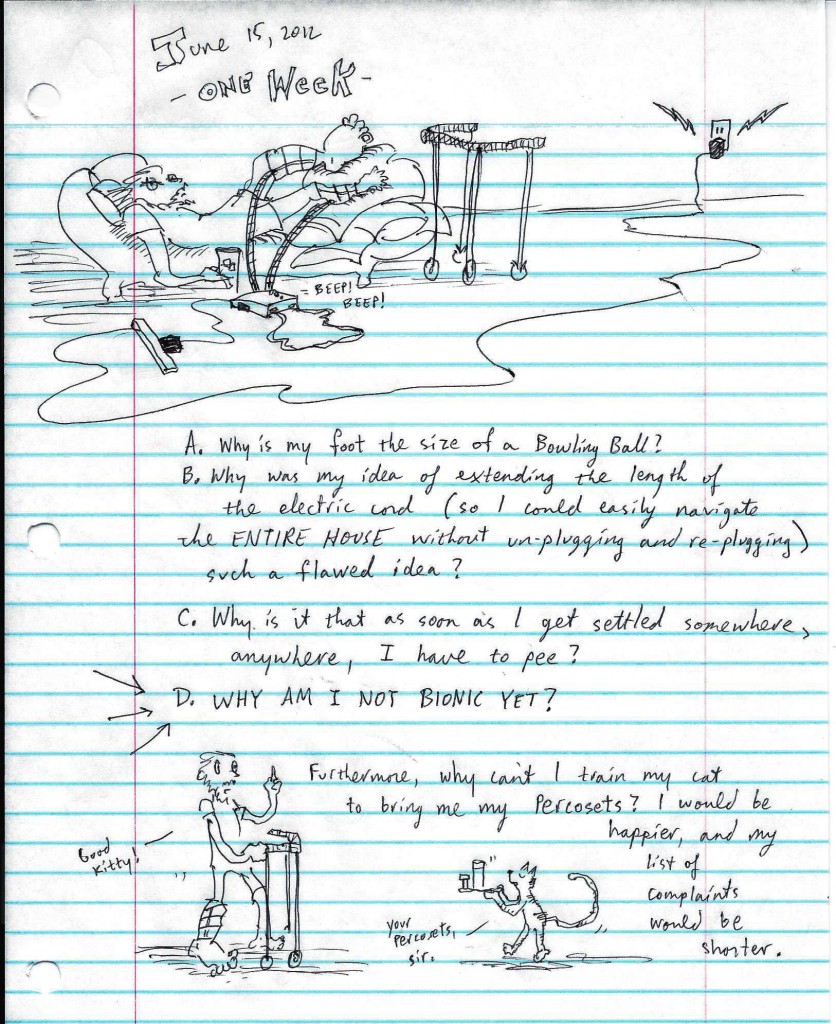 June 15, 2012
- ONE Week -
= BEEP!
BEEP!
A. Why is my foot the size of a Bowling Ball?
B. Why was my idea of extending the length of
the electric cord (so I could easily navigate
the ENTIRE HOUSE without un-plugging and re-plugging)
such a flawed idea?
C. Why is it that as soon as I get settled somewhere,
anywhere, I have to pee?
D. WHY AM I NOT BIONIC YET?
Furthermore, why can't I train my cat
to bring me my Percosets? I would be
happier, and my
list of
complaints
would be
shorter.
Good
Kitty!
your
Percosets,
sir.